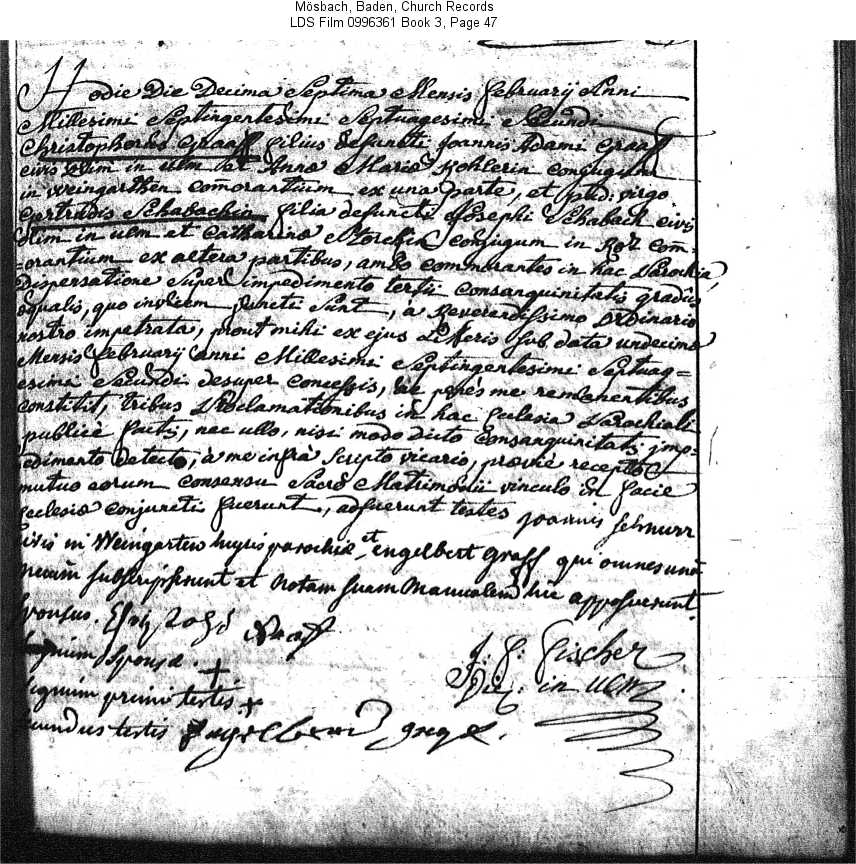 Mösbach, Baden, Church Records
LDS Film 0996361 Book 3, Page 47
Hodie Die Decima Septima Mensis Februarij Anni
Millesimi Septingentesimi Septuagesimi Secundi
Christophorus Graff filius defuncti Joannis Adami Graff
civis olim in ulm et Anna Maria Kohlerin conjugum
in Weingarthen comorantium ex una parte, et pud: virgo
Gertrudis Schabachin filia defuncti Josephi Schabach civis
olim in ulm et Catharina conjugum in com-
-orantium ex altera partibus, ambo commorantes in hac Parochia,
Dispensatione super impedimento tertii consanguinitatis gradus
equalis, quo invicem juncti sunt, à Reverendissimo Ordinario
nostro impetrata, prout mihi ex ejus Litteris sub data undecima
Mensis Februarij anni Millesimi Septingentesimi Septuag=
esimi Secundi desuper concessis, penes me remanentibus
constitit, tribus Proclamationibus in hac Ecclesia Parochiali
publicè factis, nec ullo, nisi modo dicto Consanguinitatis imp=
edimento detecto, à me infra scripto vicario, recepto
mutuo eorum consensu Sacro Matrimonii vinculo in facie
Ecclesia conjuncti fuerunt, adfuerunt testes joannis schnurr
Civis in Weingarten hujus parochiæ et engelbert graff qui omnes unà
mecum subscripserunt et notam suam manualem hic apposuerunt.
Sponsus. Graff
Signum Sponsæ. +
J: F: Fischer
Signum primi testis +
Vic: in Ulm
secundus testis